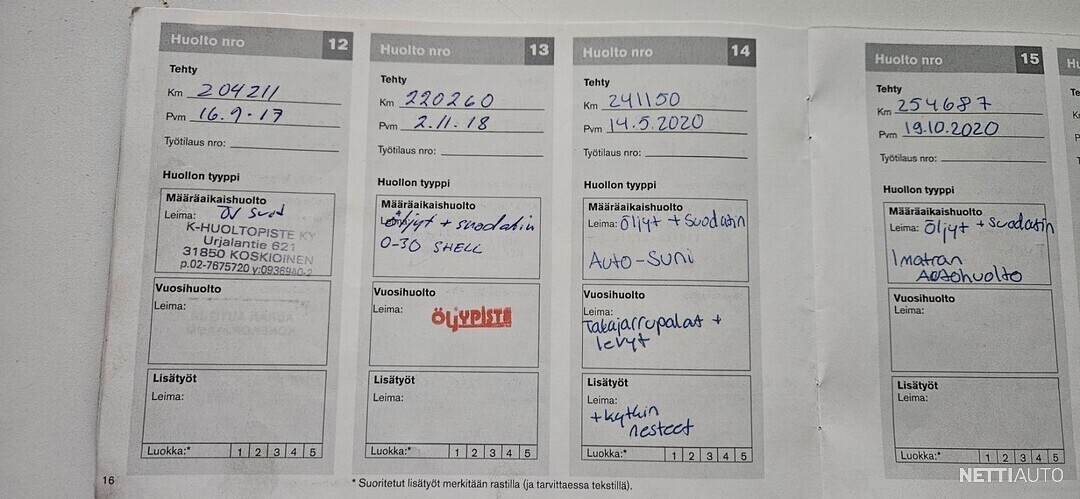 Huolto nro 12
Tehty
Km 204211
Pvm 16.9-17
Työtilaus nro:
Huollon tyyppi
Määräaikaishuolto
Leima: öv suod
K-HUOLTOPISTE KY
Urjalantie 621
31850 KOSKIOINEN
p.02-7675720 y:0936940-2
Vuosihuolto
Leima:
Lisätyöt
Leima:
Luokka:* 1 2 3 4 5
16
Huolto nro 13
Tehty
Km 220260
Pvm 2.11.18
Työtilaus nro:
Huollon tyyppi
Määräaikaishuolto
Leima: öljyt + suodatin
0-30 SHELL
Vuosihuolto
Leima:
ÖLJYPISTE
Lisätyöt
Leima:
Luokka:* 1 2 3 4 5
Huolto nro 14
Tehty
Km 241150
Pvm 14.5.2020
Työtilaus nro:
Huollon tyyppi
Määräaikaishuolto
Leima: Öljyt + Suodatin
AUTO-SUNI
Vuosihuolto
Leima:
Takajarrupalat +
levyt
Lisätyöt
Leima:
+kytkin
nesteet
Luokka:* 1 2 3 4 5
* Suoritetut lisätyöt merkitään rastilla (ja tarvittaessa tekstillä).
Huolto nro 15
Tehty
Km 254687
Pvm 19.10.2020
Työtilaus nro:
Huollon tyyppi
Määräaikaishuolto
Leima: Öljyt + suodatin
Imatran
Autohuolto
Vuosihuolto
Leima:
Lisätyöt
Leima:
Luokka:* 1 2 3 4 5
NETTIAUTO